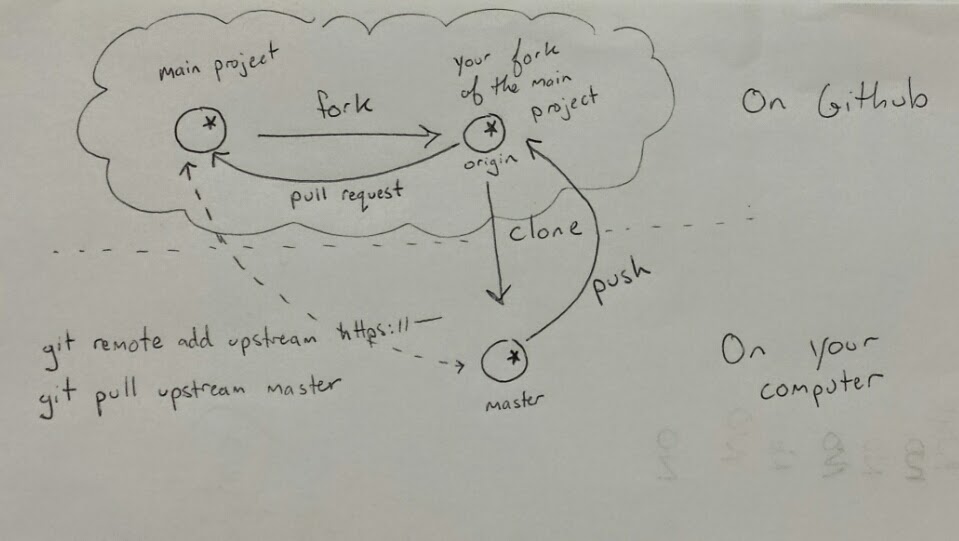 main project
your fork
of the main
project
fork
On Github
*
*
origin
pull request
clone
push
git remote add upstream https://—
git pull upstream master
*
master
On your
computer